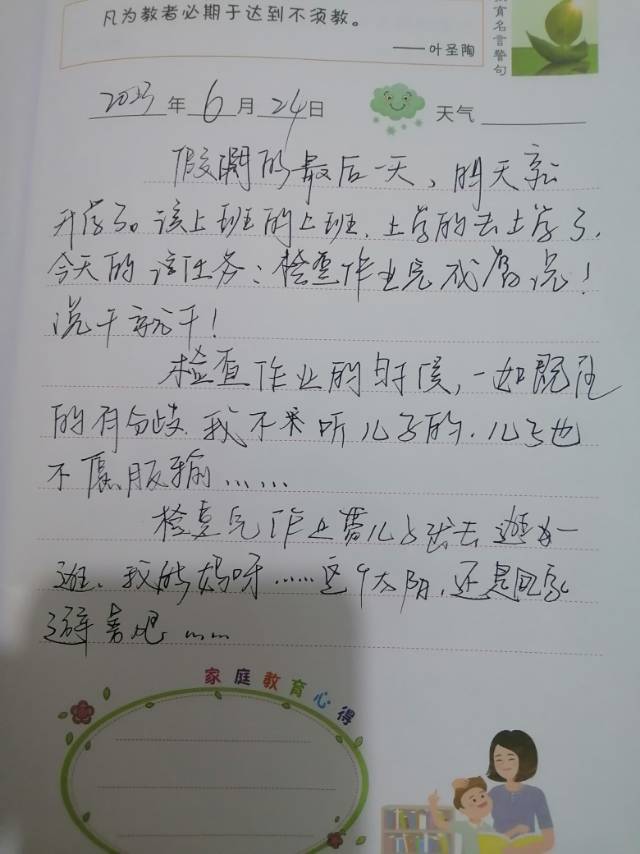 凡为教者必期于达到不须教。
——叶圣陶
育名言警句
2023年6月24日
天气
假期的最后一天，明天就
开学了。该上班的上班，上学的去上学了，
今天的该任务：检查作业完成情况！
说干就干！
检查作业的时候，一如既往
的有分歧，我不采听儿子的，儿子也
不愿服输……
检查完作业带儿子出去逛一
逛，我的妈呀……这个太阳，还是回家
避暑吧……
家庭教育心得